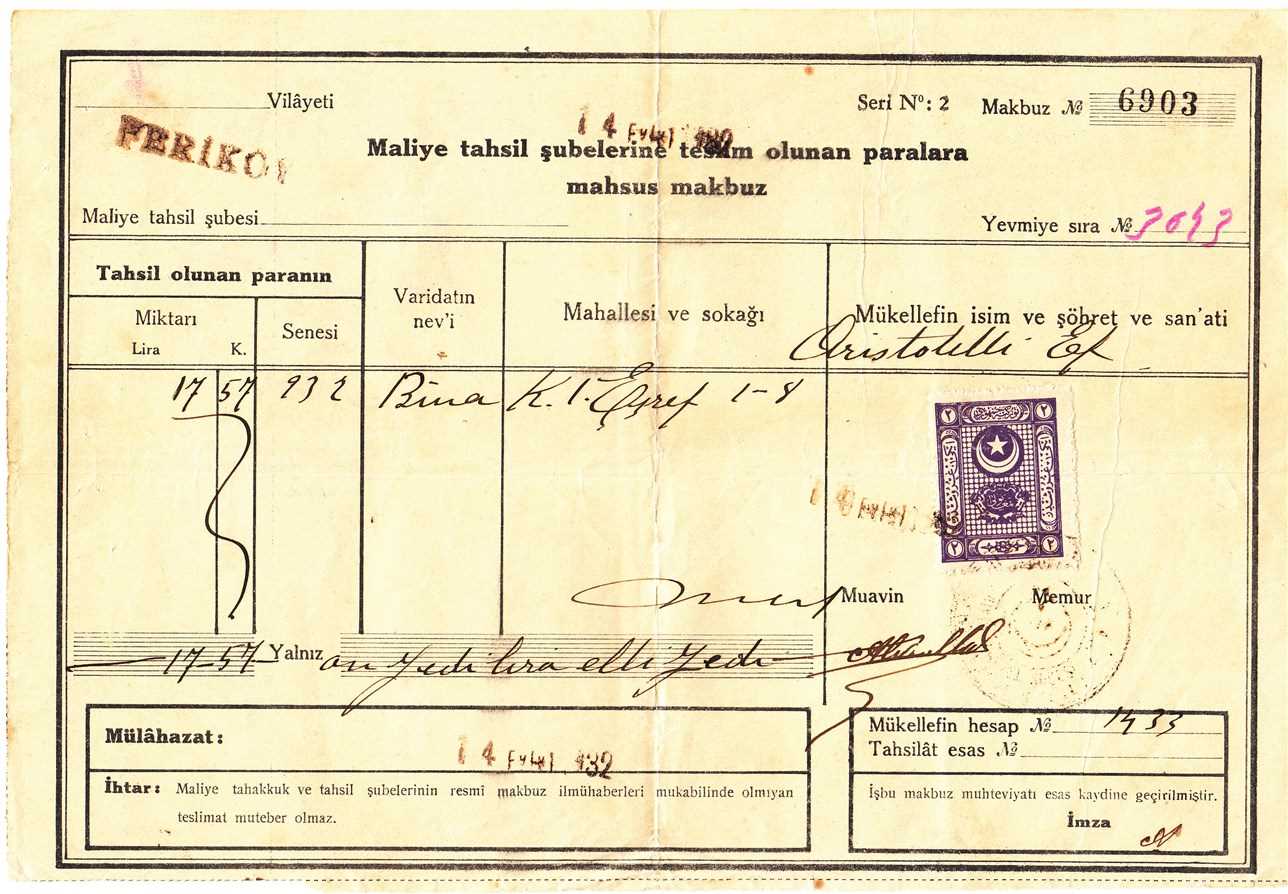 Vilâyeti
Seri No: 2
Makbuz № 6903
FERİKÖY
14 Eylûl 932
Maliye tahsil şubelerine teslim olunan paralara
mahsus makbuz
Maliye tahsil şubesi
Yevmiye sıra № 3043
Tahsil olunan paranın
Miktarı
Lira K.
Senesi
Varidatın
nev'i
Mahallesi ve sokağı
Mükellefin isim ve şöhret ve san'ati
Aristotelli Ef
17 57 932 Bina K. 1. Eşref 1-8
٢ ٢
٢ ٢
14 Eylûl
Muavin
Memur
17-57 Yalnız on yedi lira elli yedi
Mülâhazat:
14 Eylûl 932
İhtar: Maliye tahakkuk ve tahsil şubelerinin resmî makbuz ilmühaberleri mukabilinde olmıyan
teslimat muteber olmaz.
Mükellefin hesap № 1433
Tahsilât esas №
İşbu makbuz muhteviyatı esas kaydine geçirilmiştir.
İmza